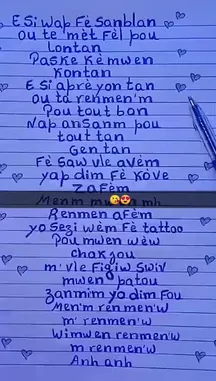 E Si Wap Fè Sanblan
Ou te mèt Fèl pou
lontan
Paske Kè mwen
Kontan
E Si abrè yon tan
Ou ta renmen'm
Pou tout bon
Nap ansanm pou
tout tan
Gen tan
Fè Saw vle avèm
yap dim Fè Kòve
ZaFèm
Menm mwen mh
Renmen aFèm
yo Sezi wèm Fè tattoo
Pou mwen wèw
chak jou
m'vle Figiw Swiv
mwen patou
Zanmim yo dim Fou
Men'm renmen'w
m' renmen'w
Wimwen renmen'w
m renmen'w
Anh anh